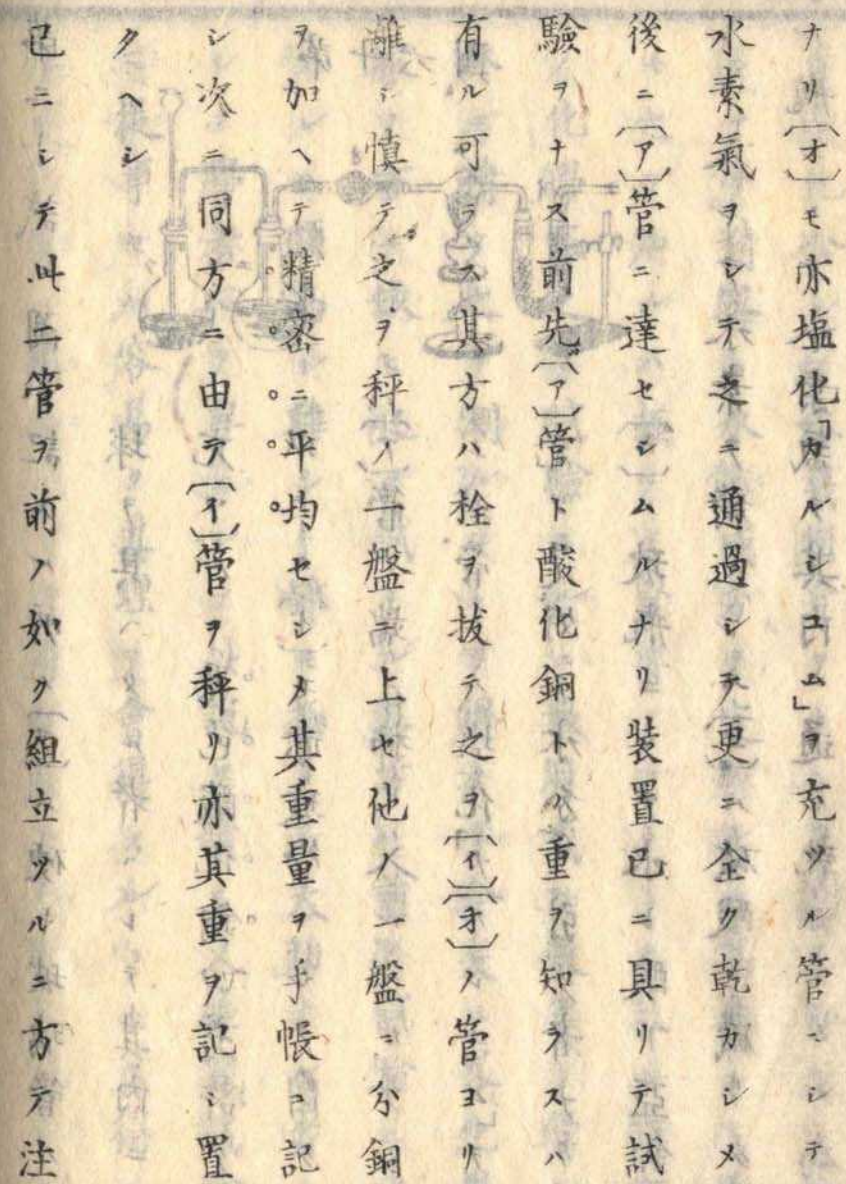 ナリ〔オ〕モ亦塩化「カルシユム」ヲ充ツル管ニシテ
水素氣ヲシテ之ニ通過シテ更ニ全ク乾カシメ
後ニ〔ア〕管ニ達セシムルナリ装置已ニ具リテ試
驗ヲナス前先〔ア〕管ト酸化銅トノ重ヲ知ラスハ
有ル可ラス其方ハ栓ヲ抜テ之ヲ〔イ〕〔オ〕ノ管ヨリ
離シ慎テ之ヲ秤ノ一盤ニ上セ他ノ一盤ニ分銅
ヲ加ヘテ精密ニ平均セシメ其重量ヲ手帳ニ記
シ次ニ同方ニ由テ〔イ〕管ヲ秤リ亦其重ヲ記シ置
クヘシ
已ニシテ此二管ヲ前ノ如ク組立ツルニ方テ注